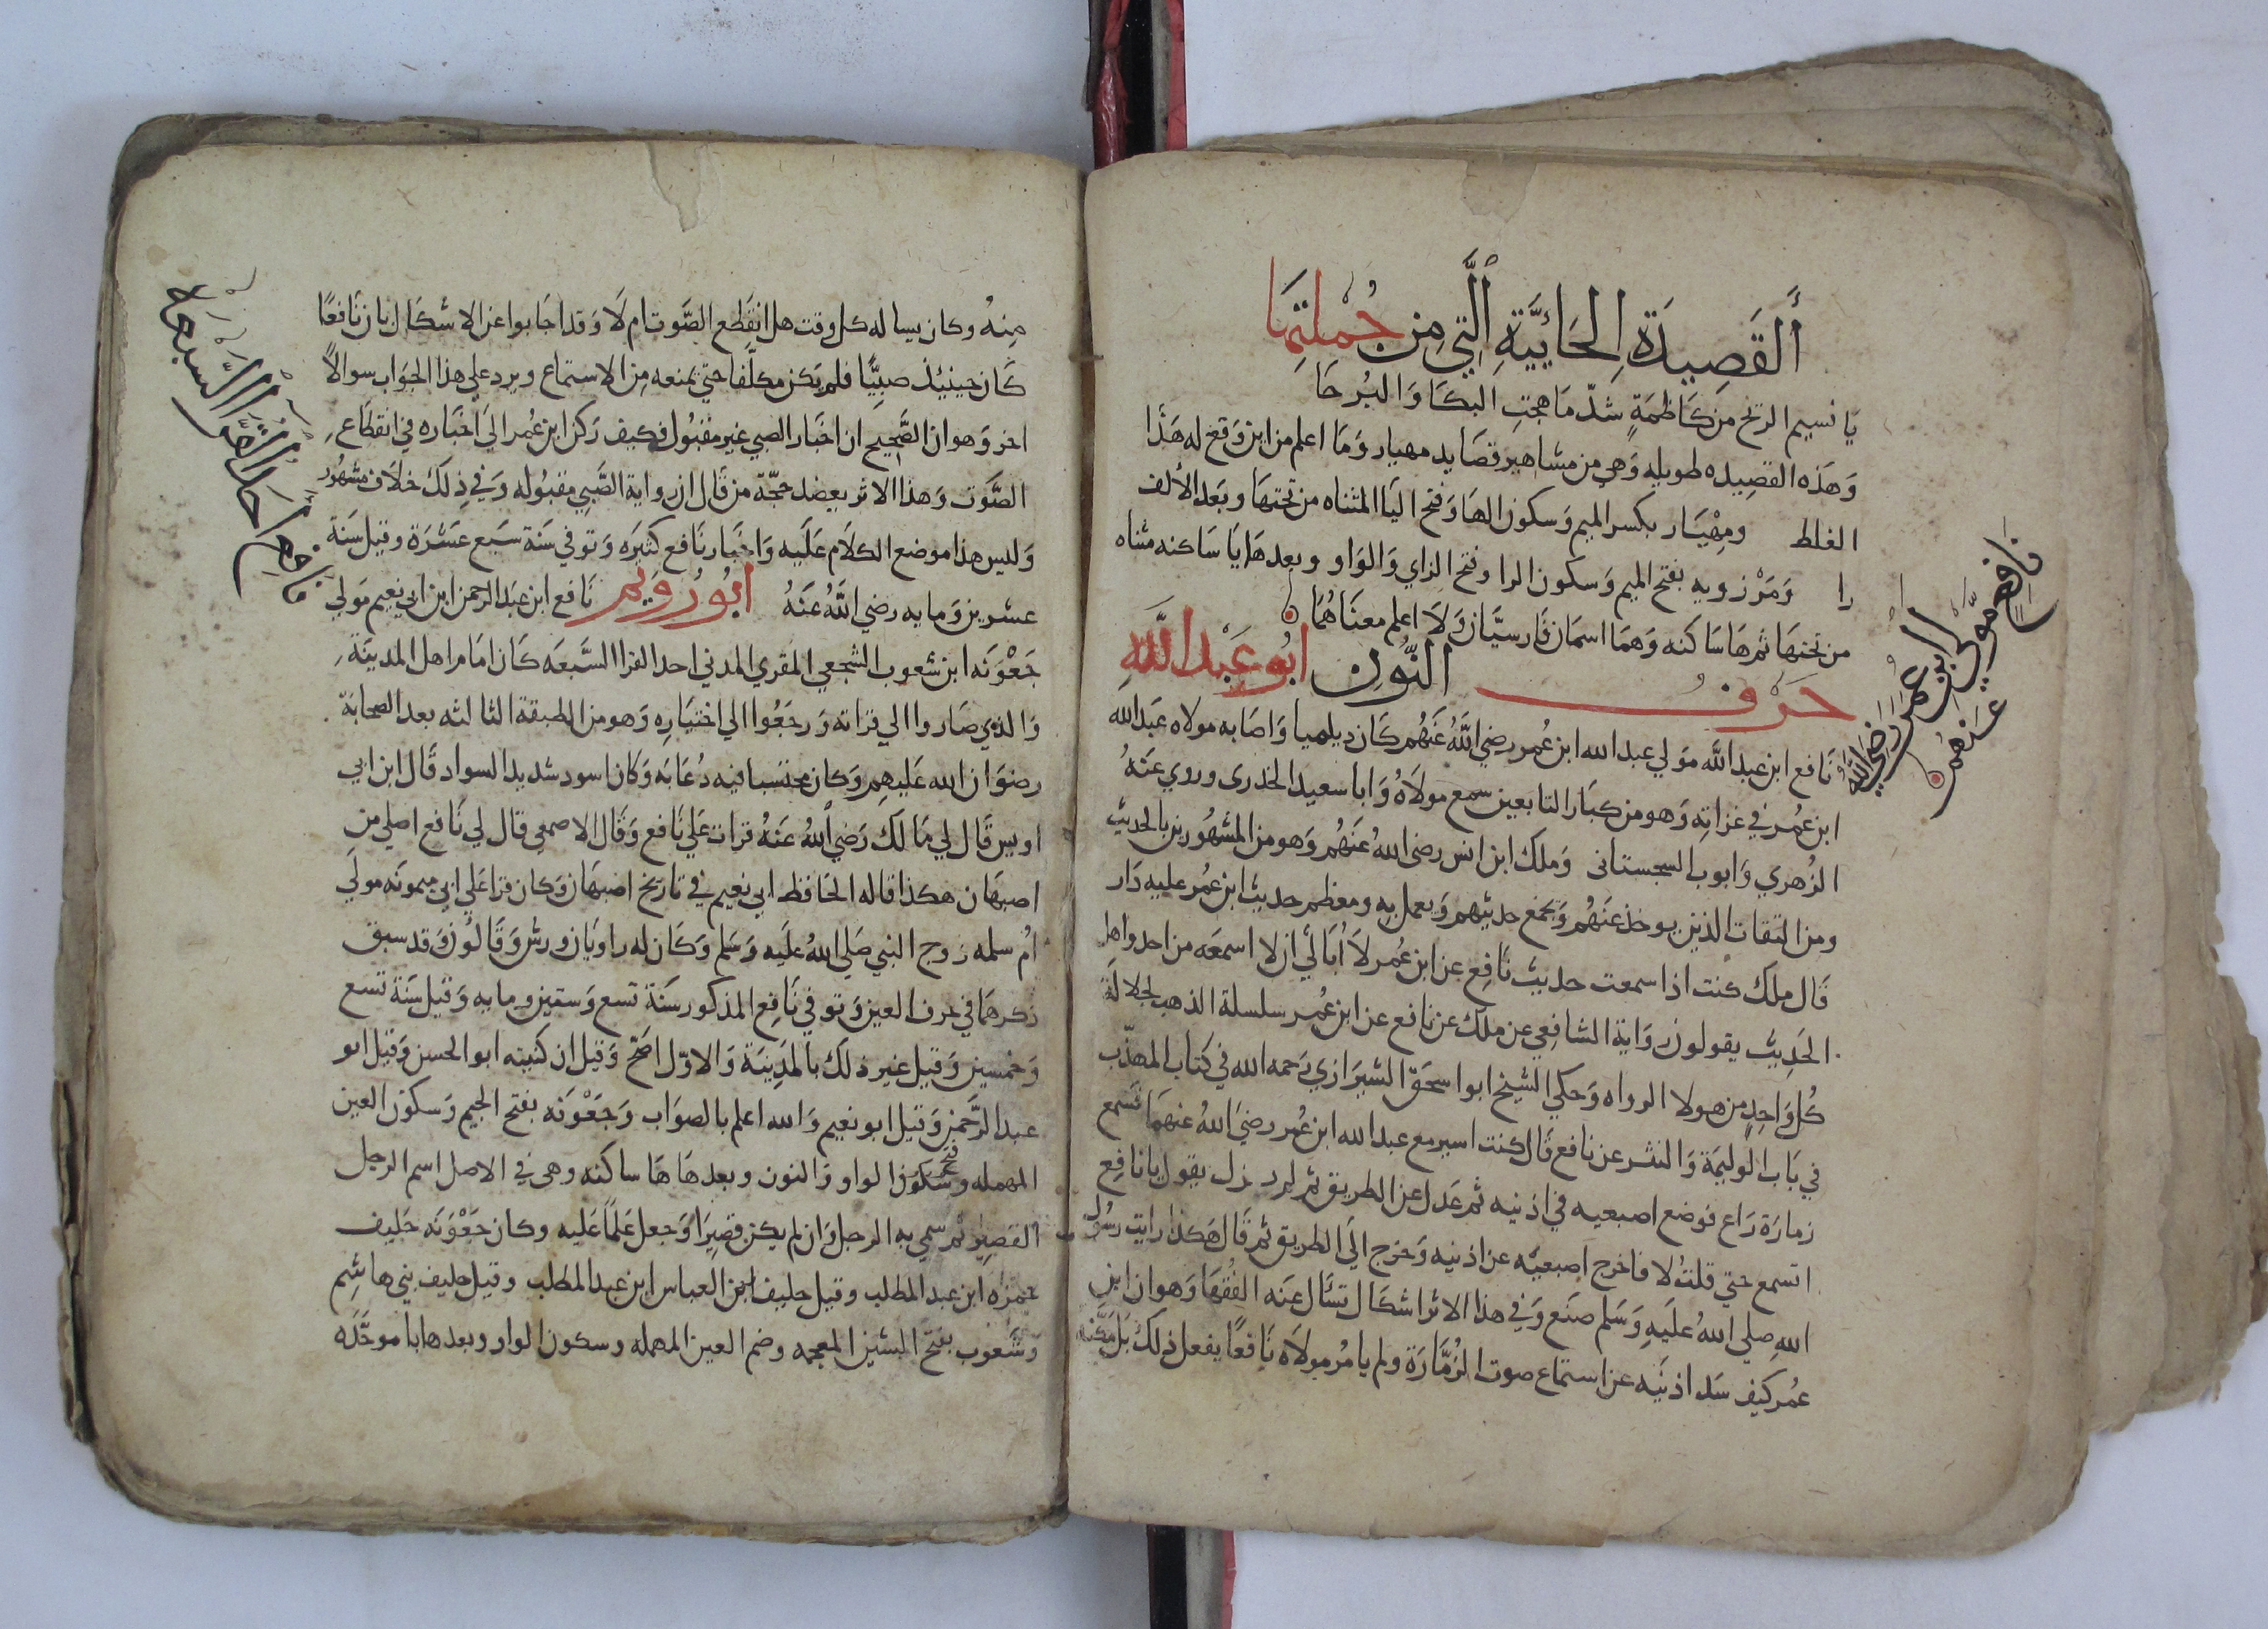 أَلقَصِيدَةِ الحَائِيَّةِ الَّتِي مِن جُملَتِهَا
يَا نسيم الريح من كَاظمَةٍ شدّ مَا هجتِ البكَا وَالبُرحَا
وَهَذه القصِيده طويله وَهي من مشاهير قصَايد مهيار وَمَا اعلم من اين وَقع له هَذَا
الغلط ومِهْيَار بكسر الميم وَسكون الهَا وَفتح اليَا المثناه من تحتهَا وبَعد الألف
را وَمَرْزويه بفتح الميم وَسكون الرا وفتح الزاي وَالوَاو وبعدهَا يَا سَاكنه مثناه
من تحتهَا ثم هَا سَاكنه وَهمَا اسمَان فَارسيَّان وَلَا اعلم معنَاهُمَا
حَرْفُ النُّون ابُو عَبْدِ اللَّهِ
نَافع ابن عبد اللَّه مَولي عبد الله ابن عُمر رضي اللَّهُ عَنهُم كَان ديلميا وَاصَابه مولاه عَبد الله
ابن عُمر في غزاتِه وَهو من كبَار التابعين سمع مولَاهُ وَابا سعيد الخدرى وروي عنَهُ
الزُهري وَايوب السجستانى وَملك ابن انس رضى اللهُ عَنهُم وَهو من المشهُورين بالحديث
ومن الثقات الذين يوخذ عنَهُم وَيجمَع حديثهم وَيعمل بِه ومعظم حديث ابن عمُر عليه دَار
قَال ملك كنت اذا سمعت حديث نَافِع عن ابن عُمر لَا اُبَالي ان لا اسمعَه من احد واهل
الحَدِيث يقولون رِوَاية الشافِعي عن ملك عن نافع عن ابن عمُر سلسلة الذهب لجلالَة
كُل وَاحِدٍ من هولا الرواه وَحكي الشيخ ابو اسحَق الشيرَازي رَحمه الله في كتَاب المهذّب
في بَاب الوليمَة وَالنثر عن نافع قَال كنت اسير مع عبد الله ابن عُمر رضيَ اللهُ عنهمَا فسَمع
زمارَة رَاع فوضع اصبعيه في اذنيه ثم عَدل عن الطريق ثم لم يزل يقول يا نافِع
اتسمع حتي قلتُ لا فاخرج اصبعيْه عن اذنيه وَخرج اليَ الطريق ثم قَال هَكذا رايت رسُول
اللهِ صلي اللهُ عليَهِ وَسَلم صنَع وَفي هذا الاثر اشكَال تسَال عنَه الفُقهَا وَهو ان ابن
عمُر كيف سَد اذنَيه عن استمَاع صوت الزُمَّارَة ولم يامُر مولَاه نَافعًا يفعل ذلكَ بَل مَكَّنه
نافِع مَوّلَى ابنِ عُمَرَ رَضِيَ اللَّهُ
عَنهُم
مِنهُ وكان يساله كل وقت هل انقَطع الصَّوت ام لَا وَقد اجَابوا عن الاشكَال بان نَافعًا
كَان حينيذ صبِيًّا فلم يَكن مكلّفا حتي يمنعه مِن الاستماع ويرد علي هذا الجوَاب سوالًا
اخر وَهو ان الصَّحِيح ان اخبَار الصبي غير مقبُول فكيف رَكن ابن عُمر اليَ اخبَاره في انقطَاع
الصَّوت وَهذا الاثر يعضد حجّة من قَال ان رواية الصَّبِي مقبُوله وَفي ذِلكَ خلَاف مشهُور
وَليس هذا موضع الكلَام عَلَيه وَاخبَار نَافع كثيَره وَتوفي سَنة سَبع عَشرَة وقيل سَنة
عشرين وَمايه رضي اللَّهُ عنَهُ ابُو رُوَيم نَافع ابن عبَد الرَحمن ابن ابي نعيم مَولي
جَعْوَنَه ابن شعوب الشجعي المقري المدني احد القرا السَّبعَه كَان امَام اهل المدينَة
وَالذي صَاروا الي قراته وَرجعُوا الي اختيَارِه وَهو من الطبقة الثالثه بعد الصحابة
رضوَان الله عَليهم وَكان محتسبا فيه دُعَابَه وَكَان اسود شديد السواد قَال ابن ابي
اويس قَال لي مَالك رَضيَ اللهُ عنَهُ قرات عَلي نَافع وَقَال الاصمعِي قال لي نَافع اصلي مِن
اصبهَان هكذا قاله الحَافظ ابي نعيم في تاريخ اصبهَان وَكان قرا عَلي ابي ميمونَه مولَي
اُم سلمه زوج النبي صَلي اللهُ عليَه وَسَلم وَكَان له راويَان ورش وَقَالُون وَقد سبق
ذكرهمَا في حرف العين وَتوفي نَافِع المذكور سَنَة تسع وَستين ومايه وَقيل سَنَة تسع
وَخمسين وَقيل غير ذلكَ بالمَدِينَة وَالاوّل اصَحّ وَقيل ان كنيته ابو الحسن وَقيل ابو
عبد الرَّحمَن وَقيل ابو نعيم وَالله اعلم بالصوَاب وَجَعْوَنَه بفتح الجيم وَسكون العين
المهمله وفتح الواو وَالنون وبعدهَا هَا ساكنه وهى في الاصل اسم الرجل
القصير ثم سمي به الرجل وَان لم يكن قصِيرًا وَجعل عَلَمًا عَليه وكان جَعْوَنَه حَليف
حمزه ابن عبد المطلب وقيل حليف ابن العباس ابن عبد المطلب وقيل حليف بني هاشِم
وَشَعوب بفتح الشين المعجمه وضم العين المهمله وسكون الواو وبعدها با موحَّدَه
نَافِع احَد القُرَّاءِ السَبعَة